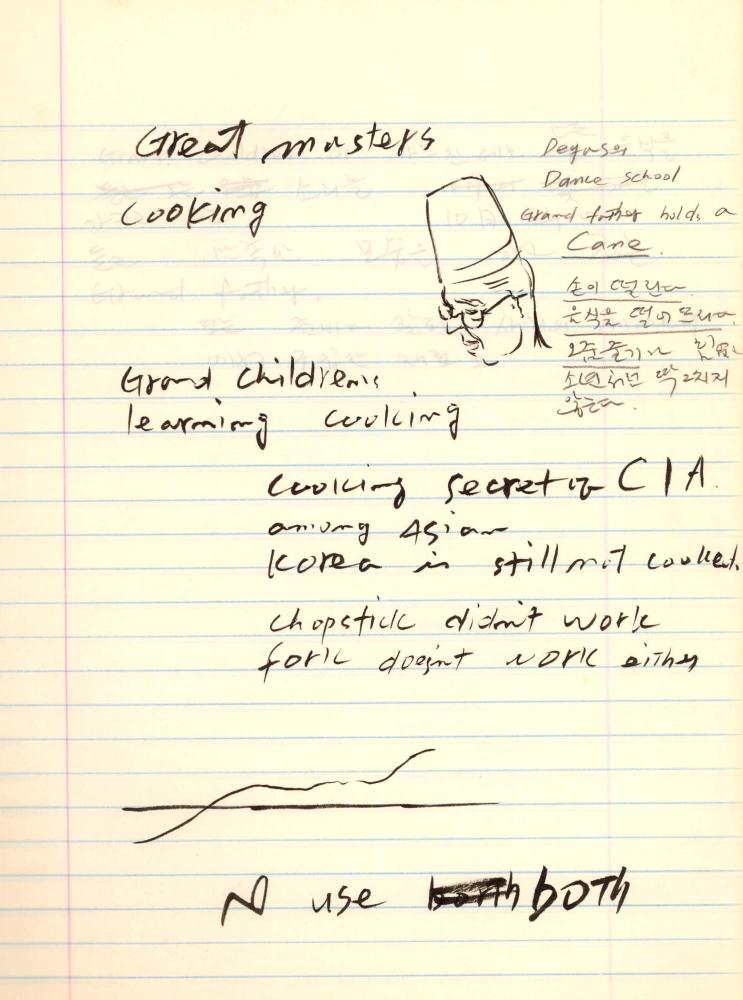 Great masters
Cooking
Degas의
Dance school
Grand father holds a
Cane.
손이 떨린다
음식을 떨어뜨린다.
오줌줄기가
소년처럼 딱 그치지
않는다.
Grand Childrens
learning cooking
cooking secret of CIA.
among Asian
Korea is still not cooked.
chopstick didn't work
fork doesn't work either
N use both